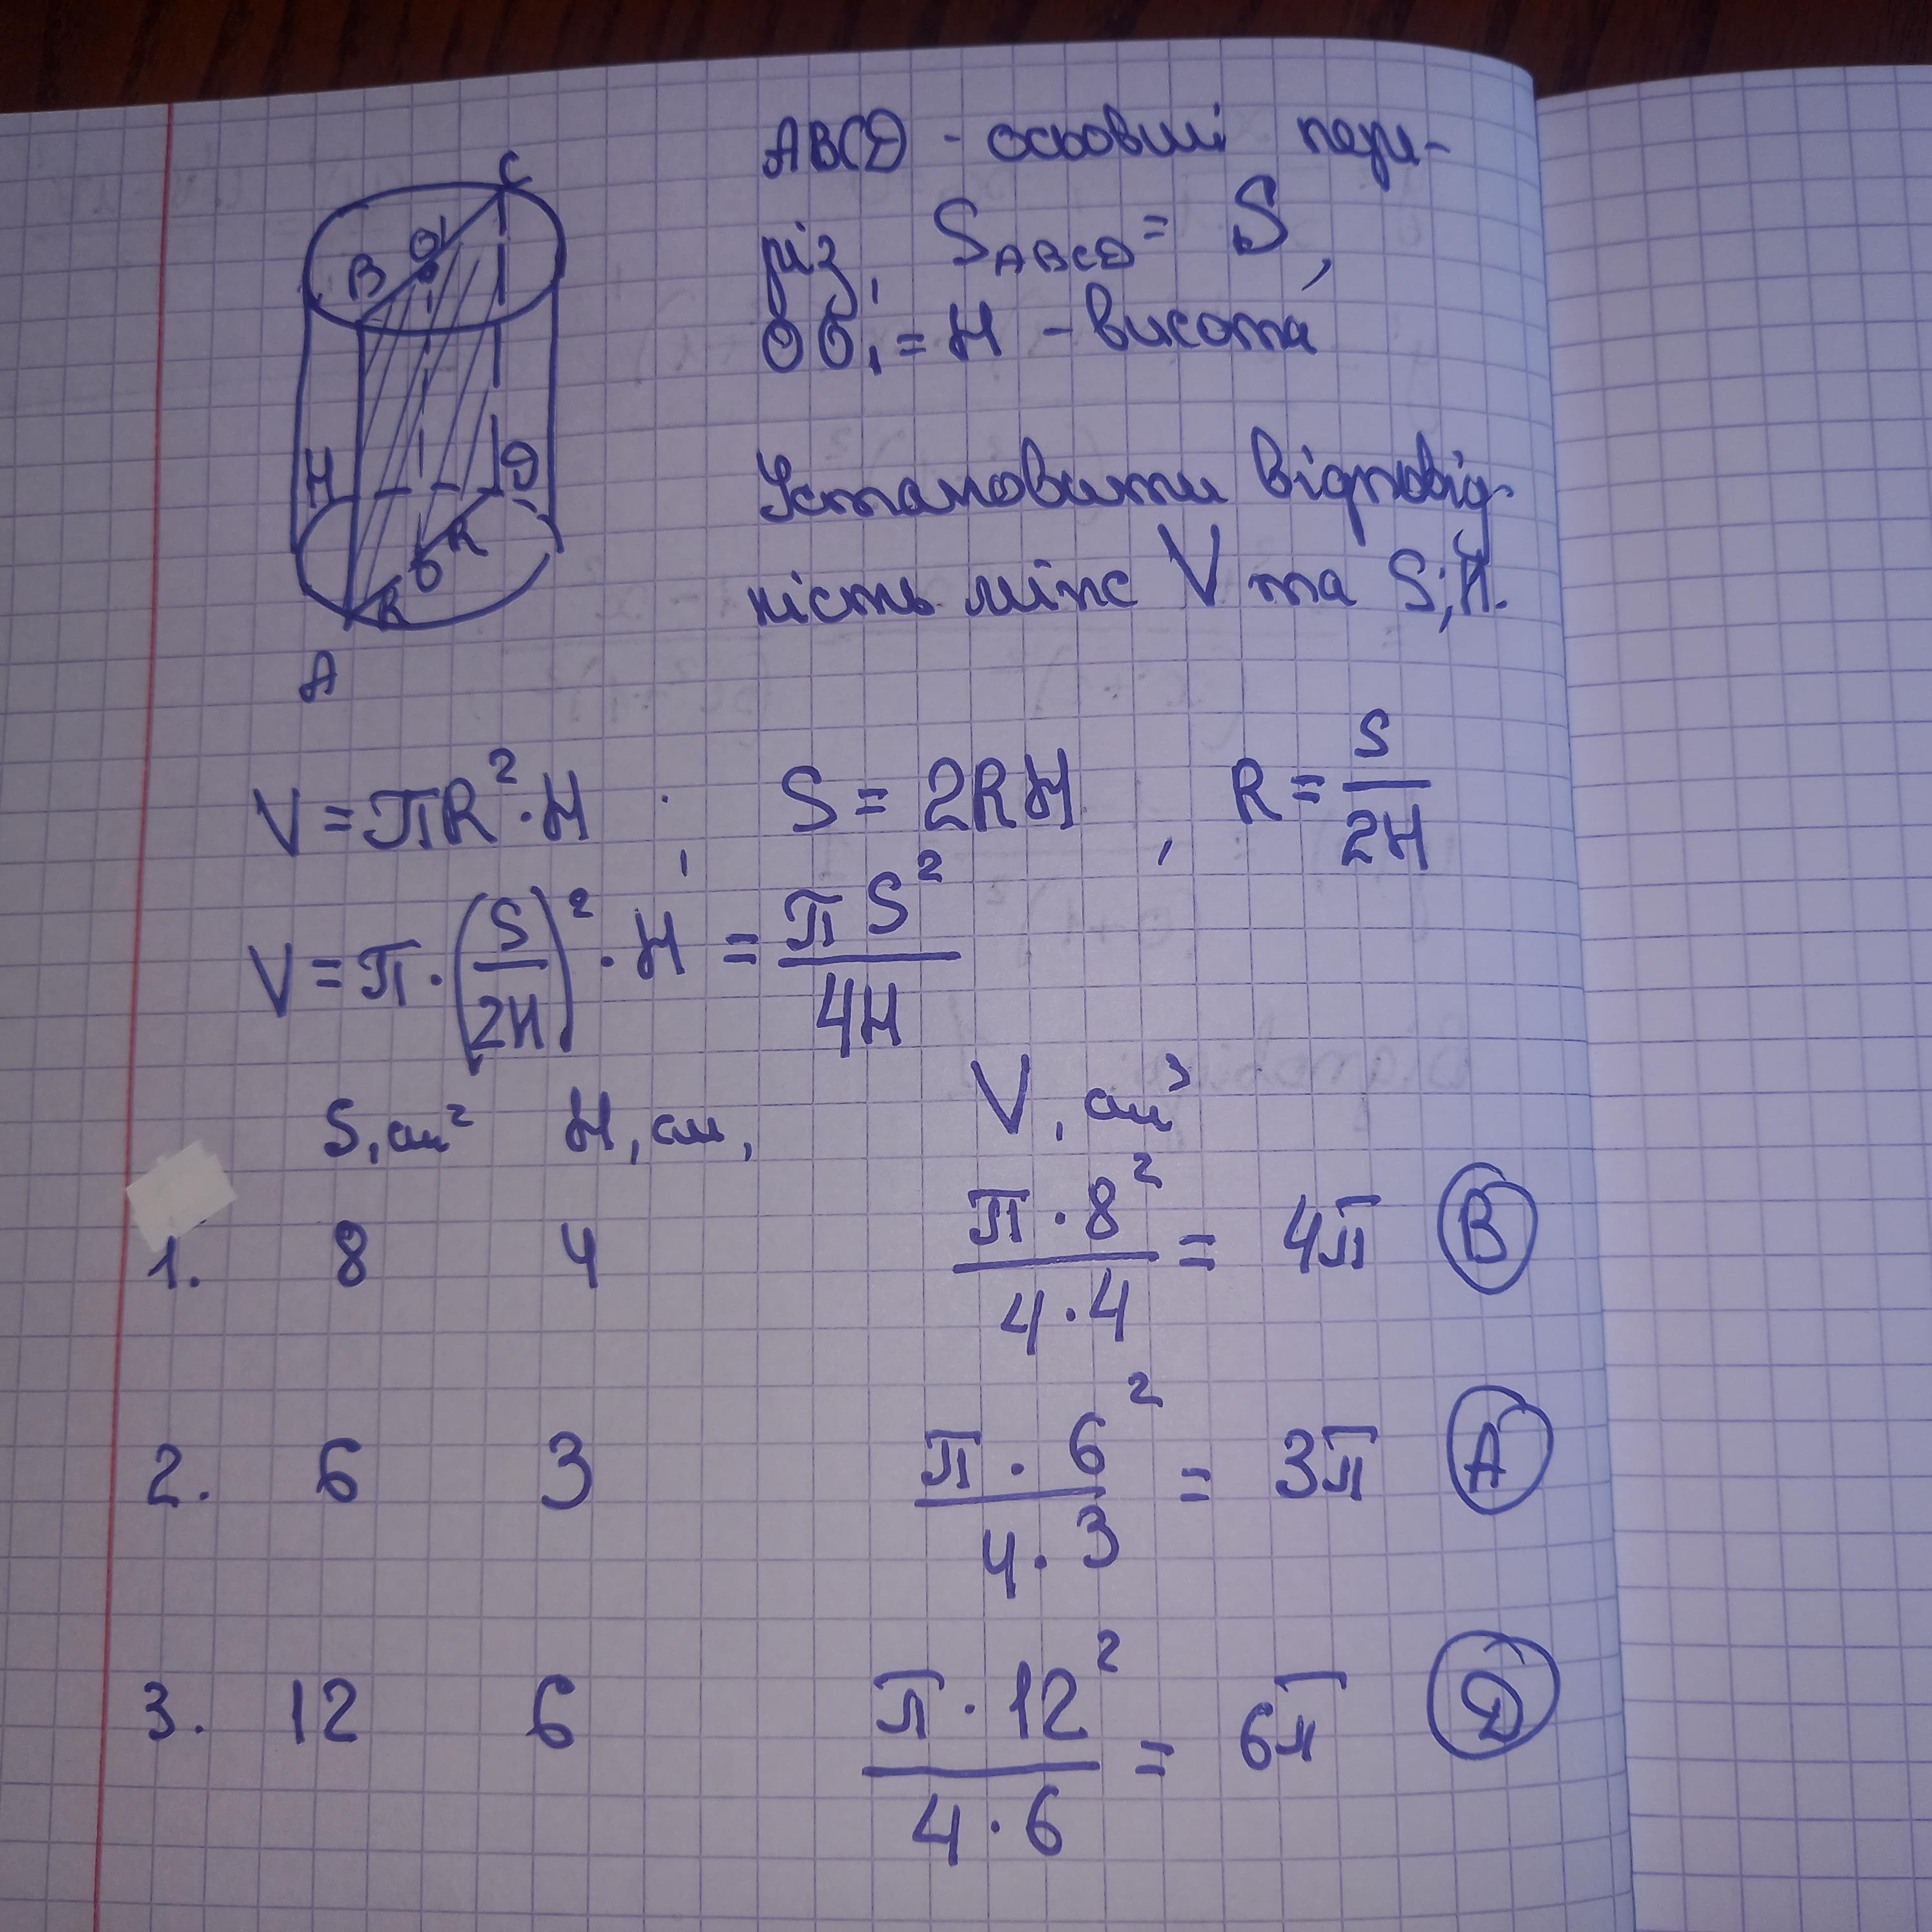 C
O₁
B
H
D
R
O
R
A
ABCD - осьовий пере-
різ, S_ABCD = S,
OO₁ = H - висота
Установити відповід-
ність між V та S; H.
V = πR² · H ; S = 2RH , R = S/2H
V = π · (S/2H)² · H = πS²/4H
S, см² H, см, V, см³
1. 8 4 π · 8²/4 · 4 = 4π В
2. 6 3 π · 6²/4 · 3 = 3π А
3. 12 6 π · 12²/4 · 6 = 6π Д